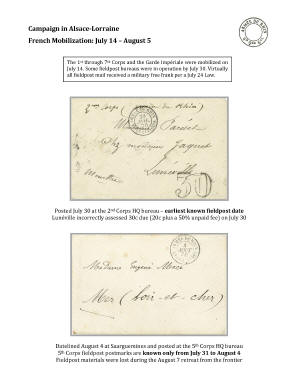 Campaign in Alsace-Lorraine
French Mobilization: July 14 – August 5
The 1st through 7th Corps and the Garde Impériale were mobilized on
July 14. Some fieldpost bureaus were in operation by July 30. Virtually
all fieldpost mail received a military free frank per a July 24 Law.
2me Corps (armée du Rhin)
Madame
Chez monsieur Jaquet
Lunéville
Meurthe
30
Posted July 30 at the 2nd Corps HQ bureau – earliest known fieldpost date
Lunéville incorrectly assessed 30c due (20c plus a 50% unpaid fee) on July 30
Madame Eugène
Mer (Loir-et-cher)
Datelined August 4 at Saarguemines and posted at the 5th Corps HQ bureau
5th Corps fieldpost postmarks are known only from July 31 to August 4
Fieldpost materials were lost during the August 7 retreat from the frontier